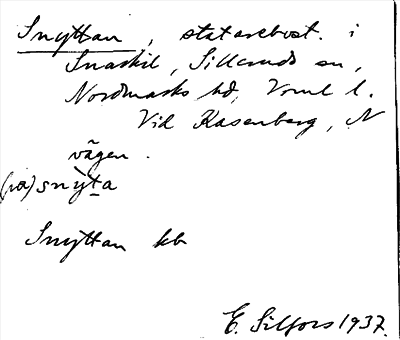 Snyttan, statarebost. i
Snarkil, Silleruds sn,
Nordmarks hd, Vrml l.
Vid Kasenberg, N
vägen.
(pa) snỳta
Snyttan kb
E. Silfors 1937.